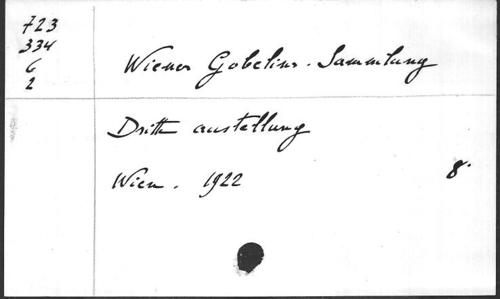 723
334
6
2
Wiener Gobelins-Sammlung
Dritte austellung
Wien. 1922
8°